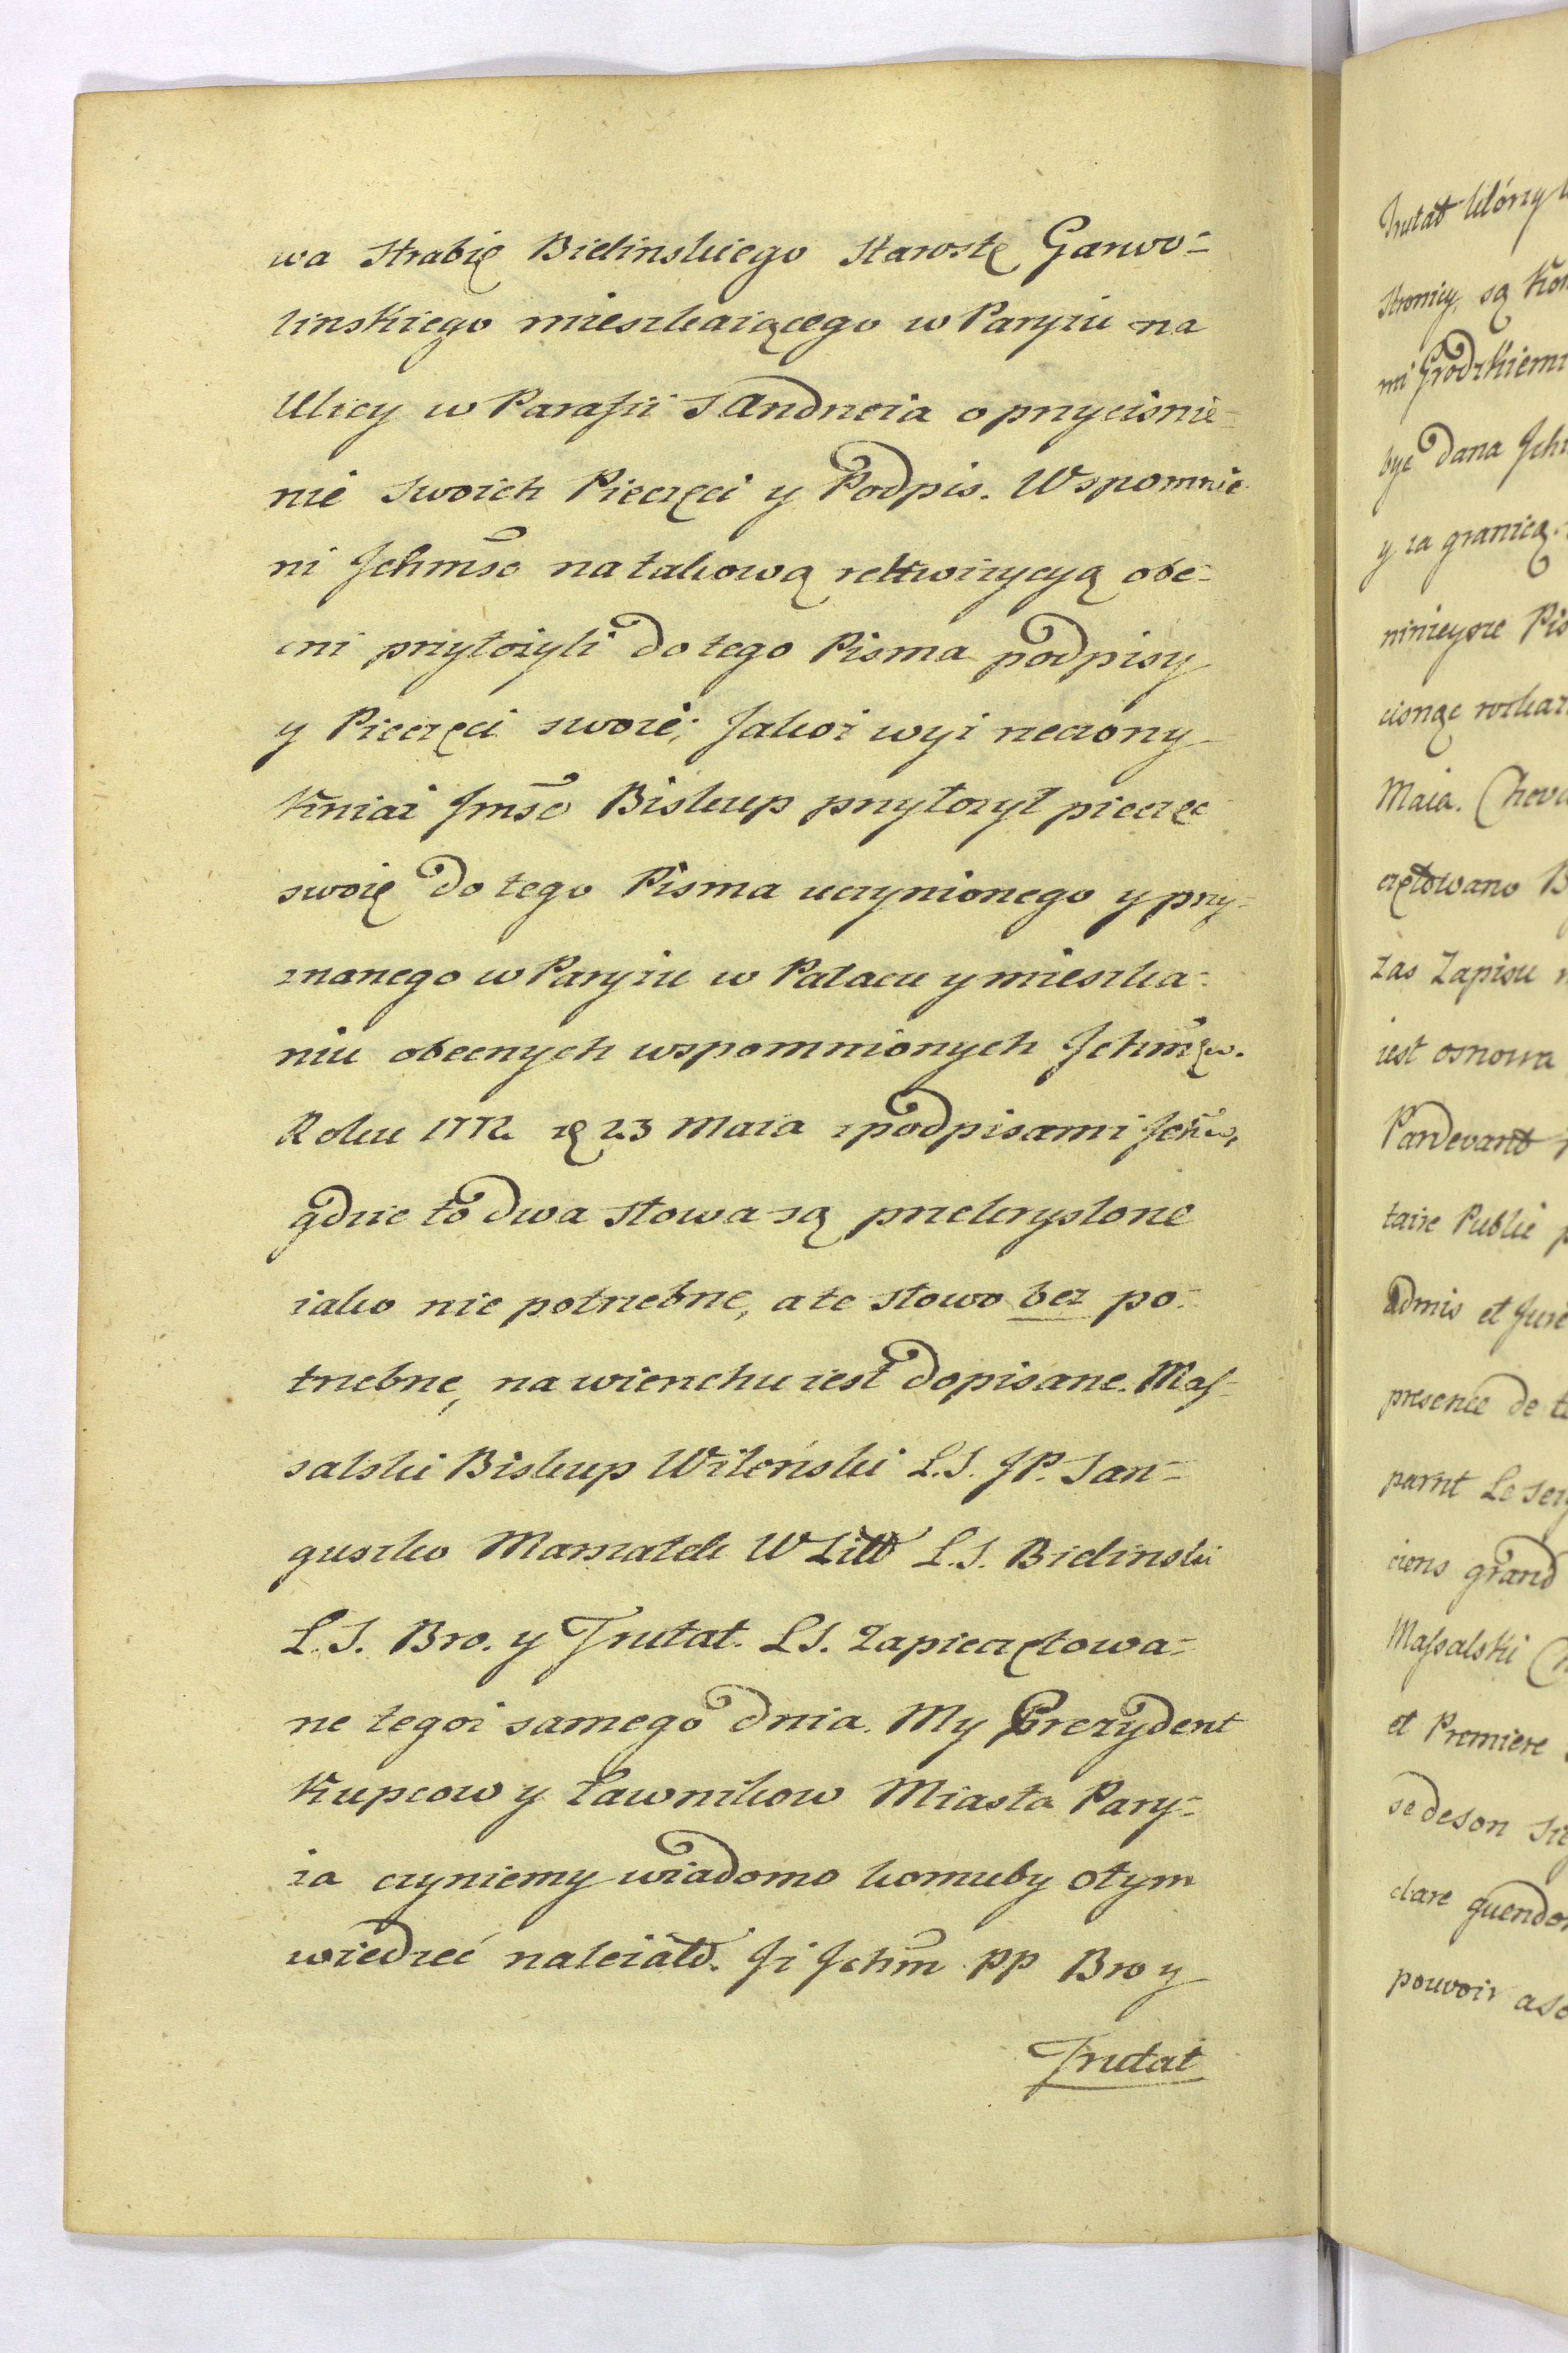 wa Hrabię Bielinskiego Starostę Garwo=
linskiego mieszkaiącego w Paryżu na
Ulicy w Parafii S Andrzeia o przyciśnie=
nie swoich Pieczęci y Podpis. Wspomnie
ni Jchmśc na takową rekwizycyą obe=
cni przyłożyli do tego Pisma podpisy
y Pieczęci swoie; Jakoż wyż rzeczony
Kniaź Jmśc Biskup przyłożył pieczęc
swoię do tego Pisma uczynionego y przy=
znanego w Paryżu w Pałacu y mieszka=
niu obecnych wspomnionych Jchmw.
Roku 1772 23 Maia z podpisami Jchw,
gdzie to dwa słowa są przekryslone
iako nie potrzebne, ale słowo bez po=
trzebne, na wierzchu iest dopisane. Mas=
salski Biskup Wileński L.S. JP. San=
guszko Marszałek W Litt L.S. Bielinski
L.S. Bro. y Trutat. LS. Zapieczętowa=
ne tegoż samego dnia. My Prezydent
Kupcow y Ławnikow Miasta Pary=
ża czyniemy wiadomo komuby otym
wiedzieć należało. Jż Jchm PP Bro y
Trutat
Trutat który
stronicy, są
mi Grodzkiemi
byc dana
y za granicą.
ninieysze
cisnąc
Maia.
częłowano
zas Zapisu
iest osnowa
Pardevant
taire Public
admis et
presence de
parnt Le
ciens grand
Massalski
et Premiere
se de son
clare
pouvoir